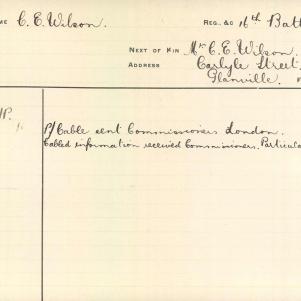 ME C. E. Wilson. REG. &C 16th Batt
NEXT OF KIN Mr C. E. Wilson.
ADDRESS Carlyle Street,
Glanville.
P/Cable sent Commissioners London.
Cabled information received Commissioners. Particula